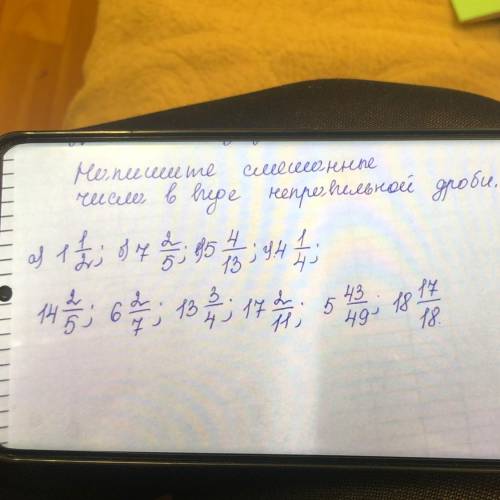 Напишите смешанные
числа в виде неправильной дроби.
а) 1 1/2; б) 7 2/5; в) 5 4/13; г) 4 1/4;
14 2/5; 6 2/7; 13 3/4; 17 2/11; 5 43/49; 18 17/18.